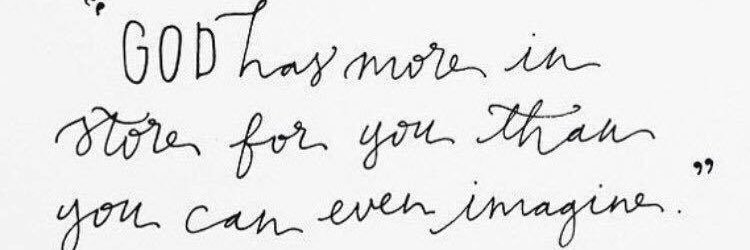 “GOD has more in
store for you than
you can even imagine.”